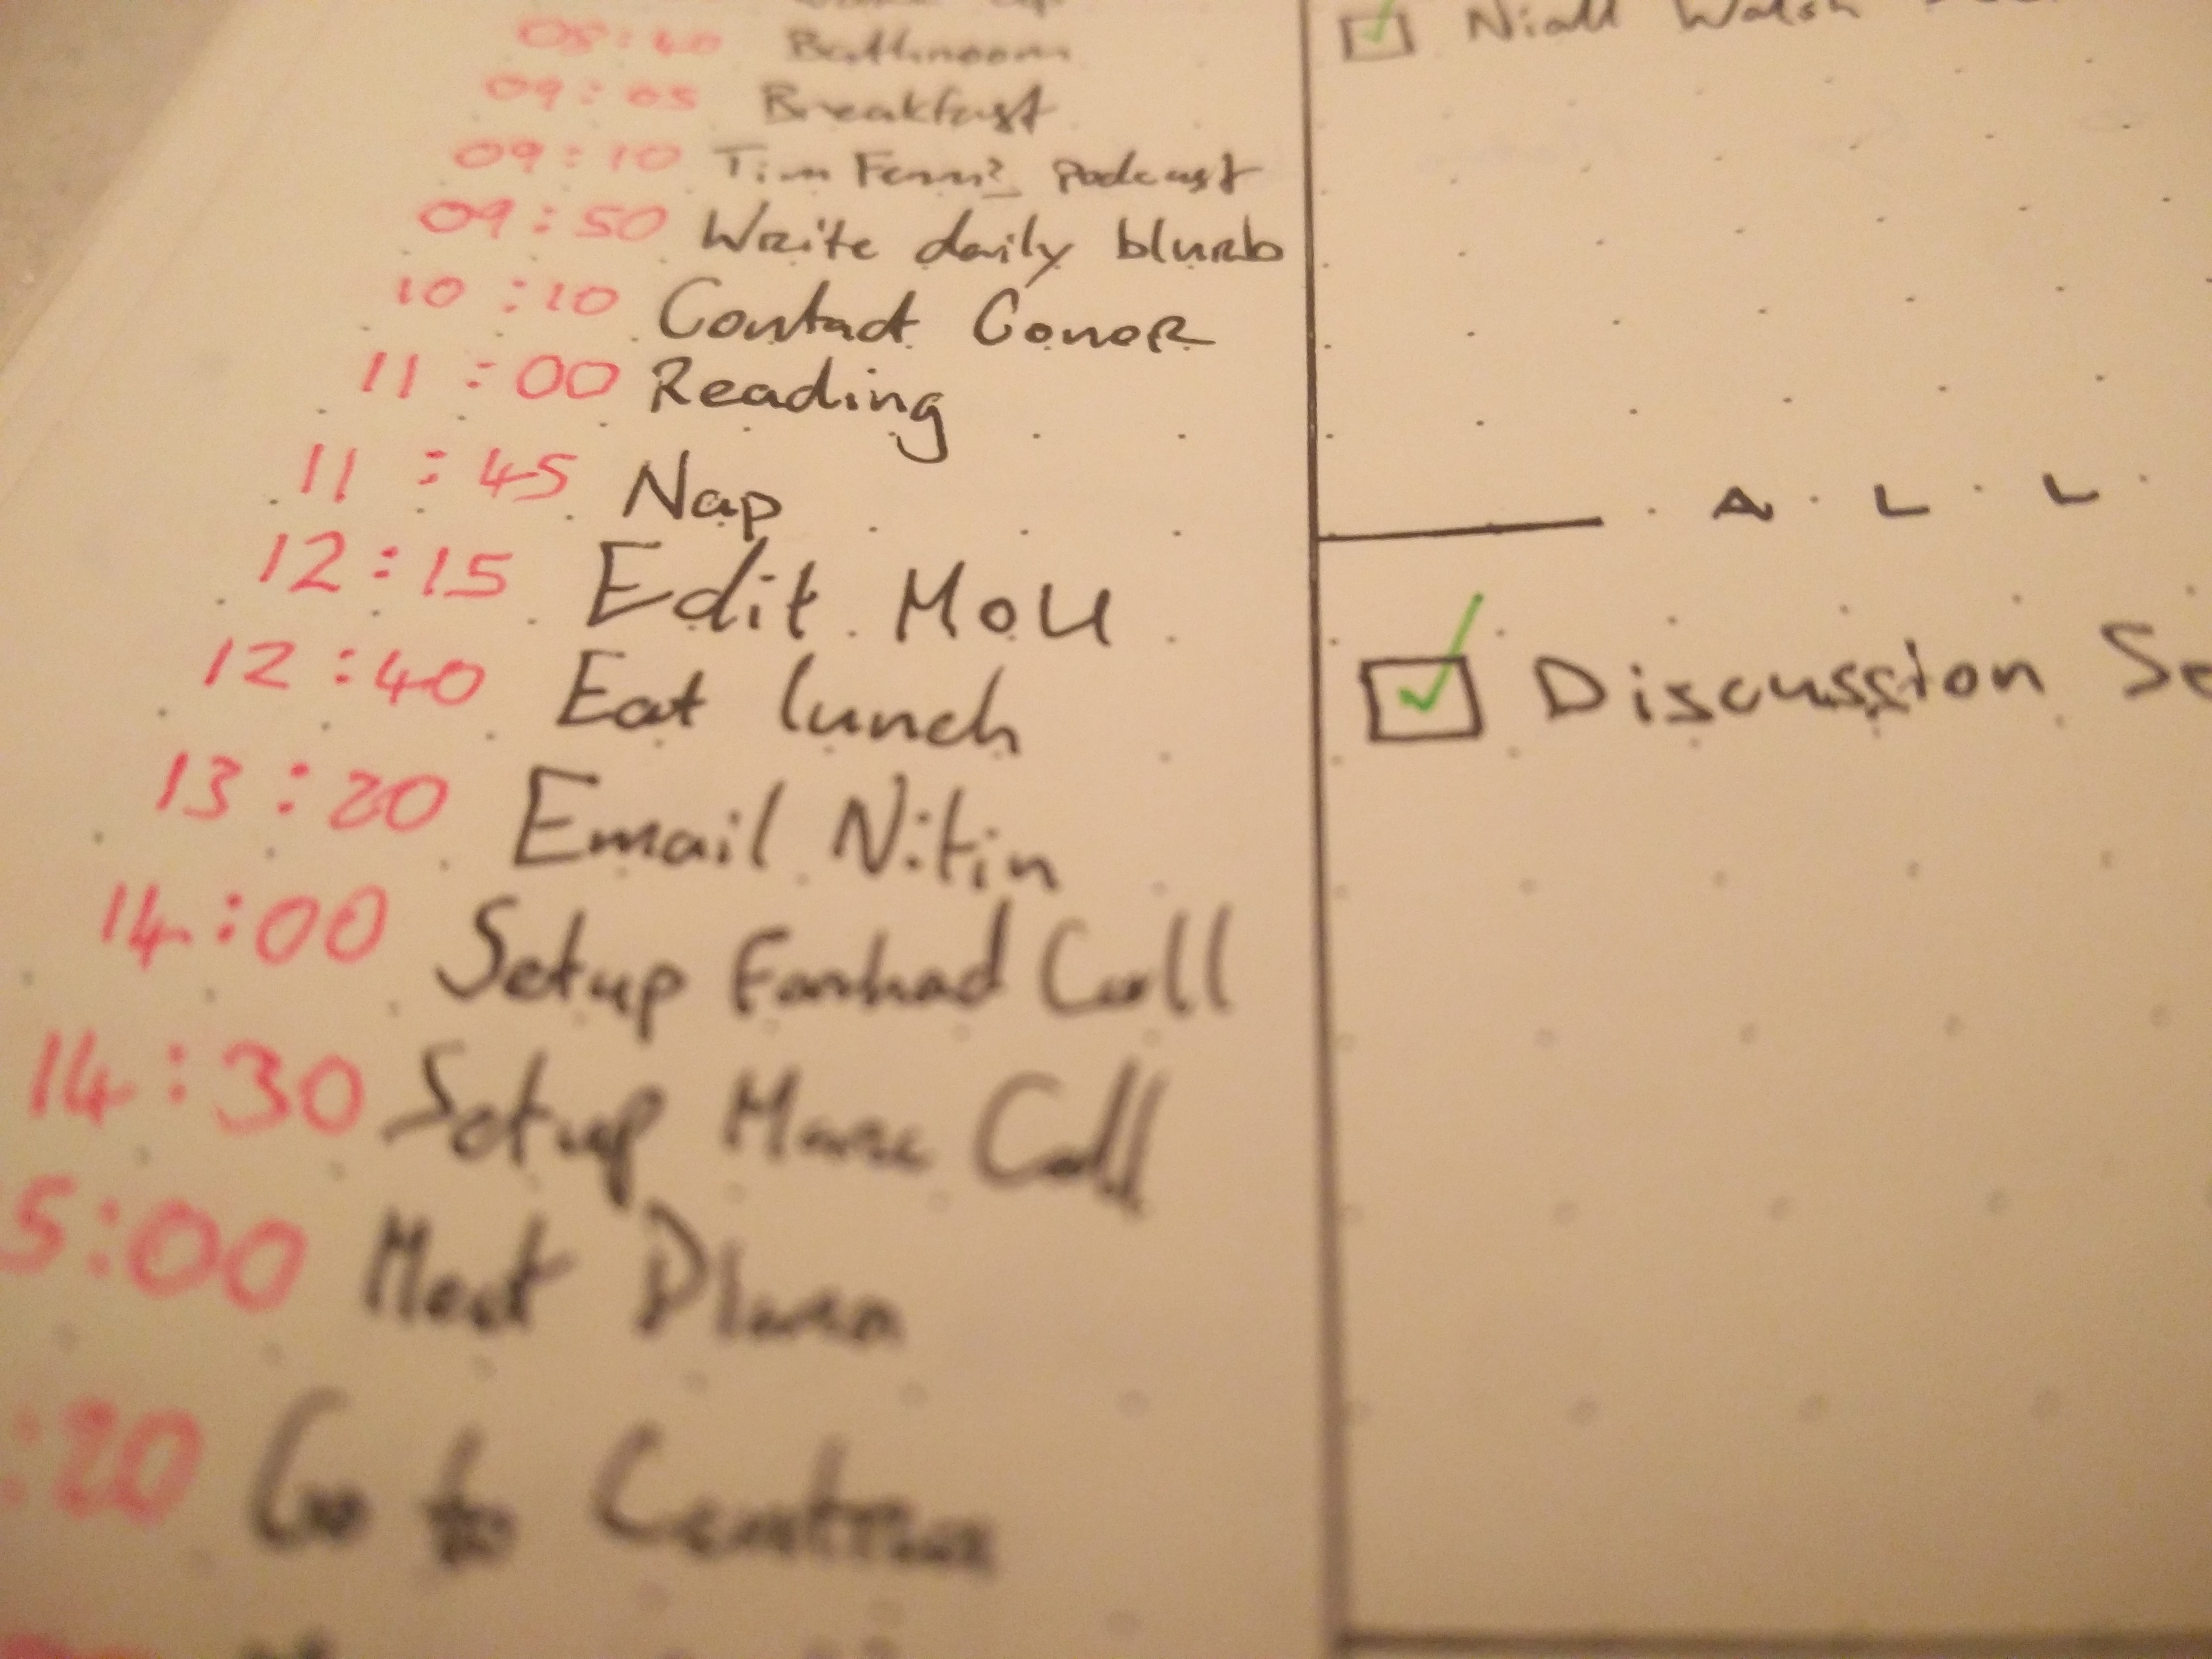 08:40 Bathroom
09:05 Breakfast
09:10 Tim Ferriss podcast
09:50 Write daily blurb
10:10 Contact Conor
11:00 Reading
11:45 Nap
12:15 Edit MoU
12:40 Eat lunch
13:20 Email Nitin
14:00 Setup Farhad Call
14:30 Setup Marc Call
5:00 Meet
:20 Go to Centra
Niall Walsh
ALL
Discussion Se